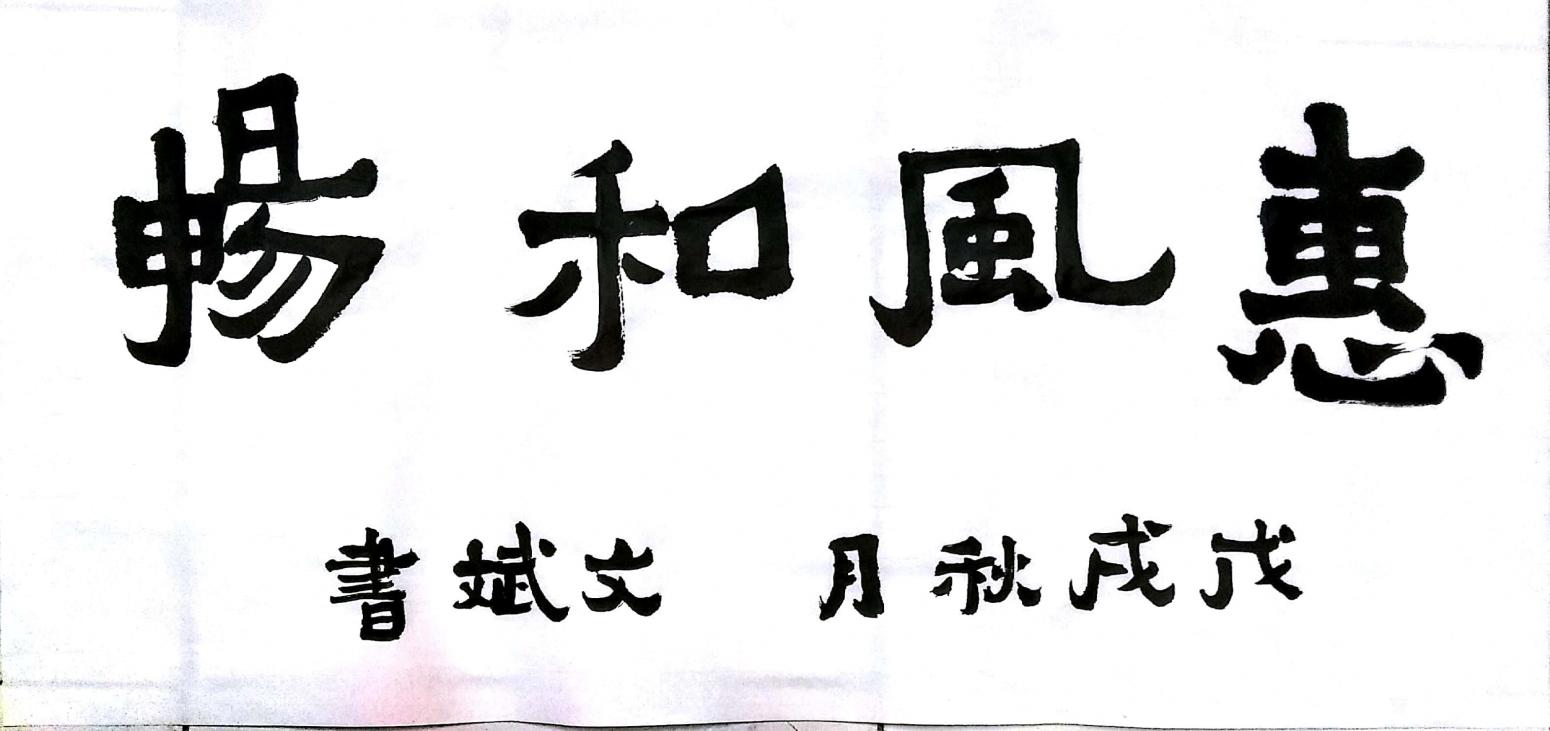 惠風和暢
戊戌秋月 文斌書